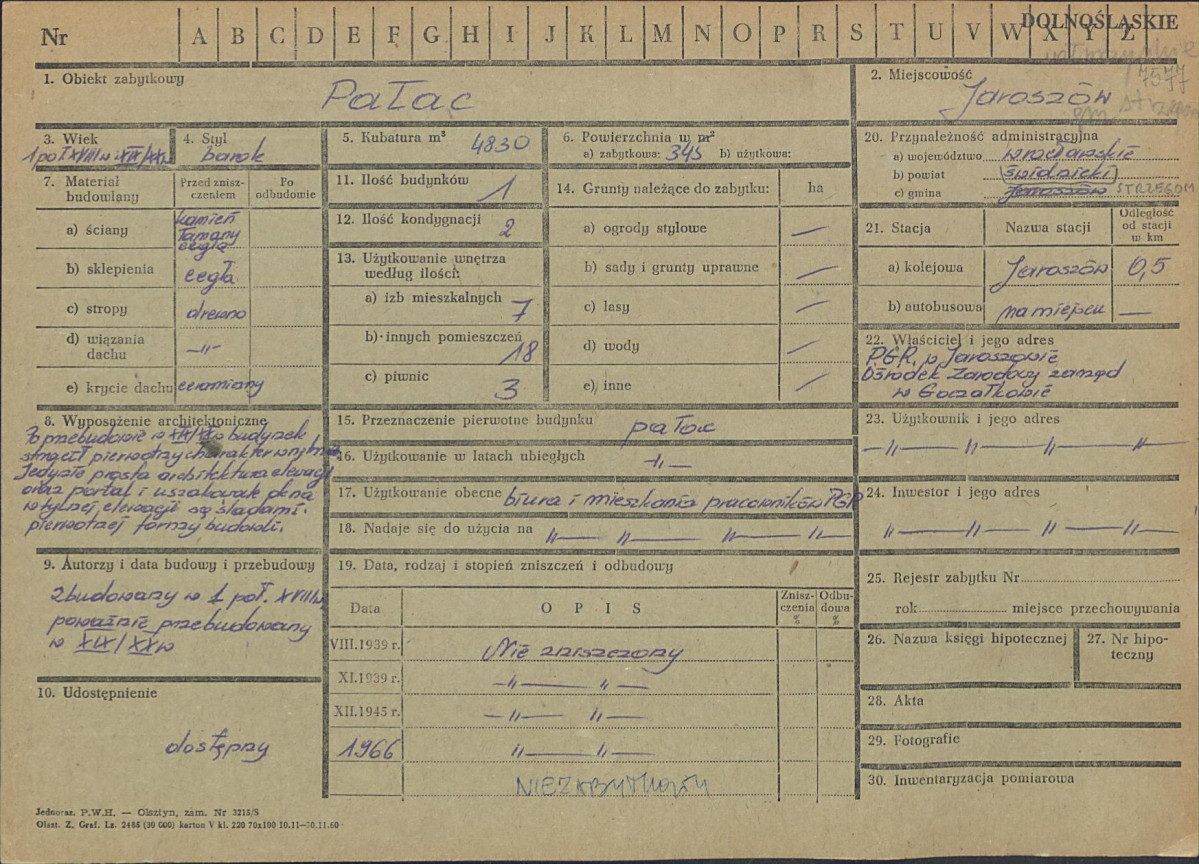 DOLNOŚLĄSKIE
Nr A B C D E F G H I J K L M N O P R S T U V W X Y Z
1. Obiekt zabytkowy
Pałac
2. Miejscowość
Jaroszów
gm. strzegom
3. Wiek
1 poł XVIII w i XIX/XXw
4. Styl
barok
5. Kubatura m³ 4830
6. Powierzchnia w m²
a) zabytkowa: 345 b) użytkowa:
7. Materiał budowlany
Przed zniszczeniem
Po odbudowie
a) ściany
kamień
łamany
cegła
b) sklepienia cegła
c) stropy drewno
d) wiązania dachu —„—
e) krycie dachu ceramiany
8. Wyposążenie architektoniczne
Po przebudowie w XIX/XX w budynek
stracił pierwotny charakter wnętrza.
Jedynie prosta architektura elewacji
oraz portal i uszakowate okna
w tylnej elewacji są śladami
pierwotnej formy budowli.
9. Autorzy i data budowy i przebudowy
zbudowany w 1 poł. XVIII w
poważnie przebudowany
w XIX/XX w
10. Udostępnienie
dostępny
11. Ilość budynków 1
12. Ilość kondygnacji 2
13. Użytkowanie wnętrza
według ilości:
a) izb mieszkalnych 7
b) innych pomieszczeń 18
c) piwnic 3
14. Grunty należące do zabytku: ha
a) ogrody stylowe —
b) sady i grunty uprawne —
c) lasy —
d) wody —
e) inne —
15. Przeznaczenie pierwotne budynku pałac
16. Użytkowanie w latach ubiegłych —„—
17. Użytkowanie obecne biura i mieszkania pracowników PGR
18. Nadaje się do użycia na „— „— „— „—
19. Data, rodzaj i stopień zniszczeń i odbudowy
Data O P I S Zniszczenia % Odbudowa %
VIII.1939 r. Nie zniszczony
XI.1939 r. —„— „—
XII.1945 r. —„— „—
1966 „— „—
NIEZABYTKOWY
20. Przynależność administracyjna
a) województwo wrocławskie
b) powiat świdnicki
c) gmina Jaroszów STRZEGOM
21. Stacja
Nazwa stacji
Odległość od stacji w km
a) kolejowa Jaroszów 0,5
b) autobusowa na miejscu —
22. Właściciel i jego adres
P.G.R. w Jaroszowie
Ośrodek Zarodowy zarząd
w Goczałkowie
23. Użytkownik i jego adres
—„— „— „— „—
24. Inwestor i jego adres
„— „— „— „—
25. Rejestr zabytku Nr
rok miejsce przechowywania
26. Nazwa księgi hipotecznej
27. Nr hipoteczny
28. Akta
29. Fotografie
30. Inwentaryzacja pomiarowa
Jednoraz. P.W.H. — Olsztyn, zam. Nr 3215/S
Olszt. Z. Graf. Lz. 2485 (30 000) karton V kl. 220 70x100 10.11—30.11.60